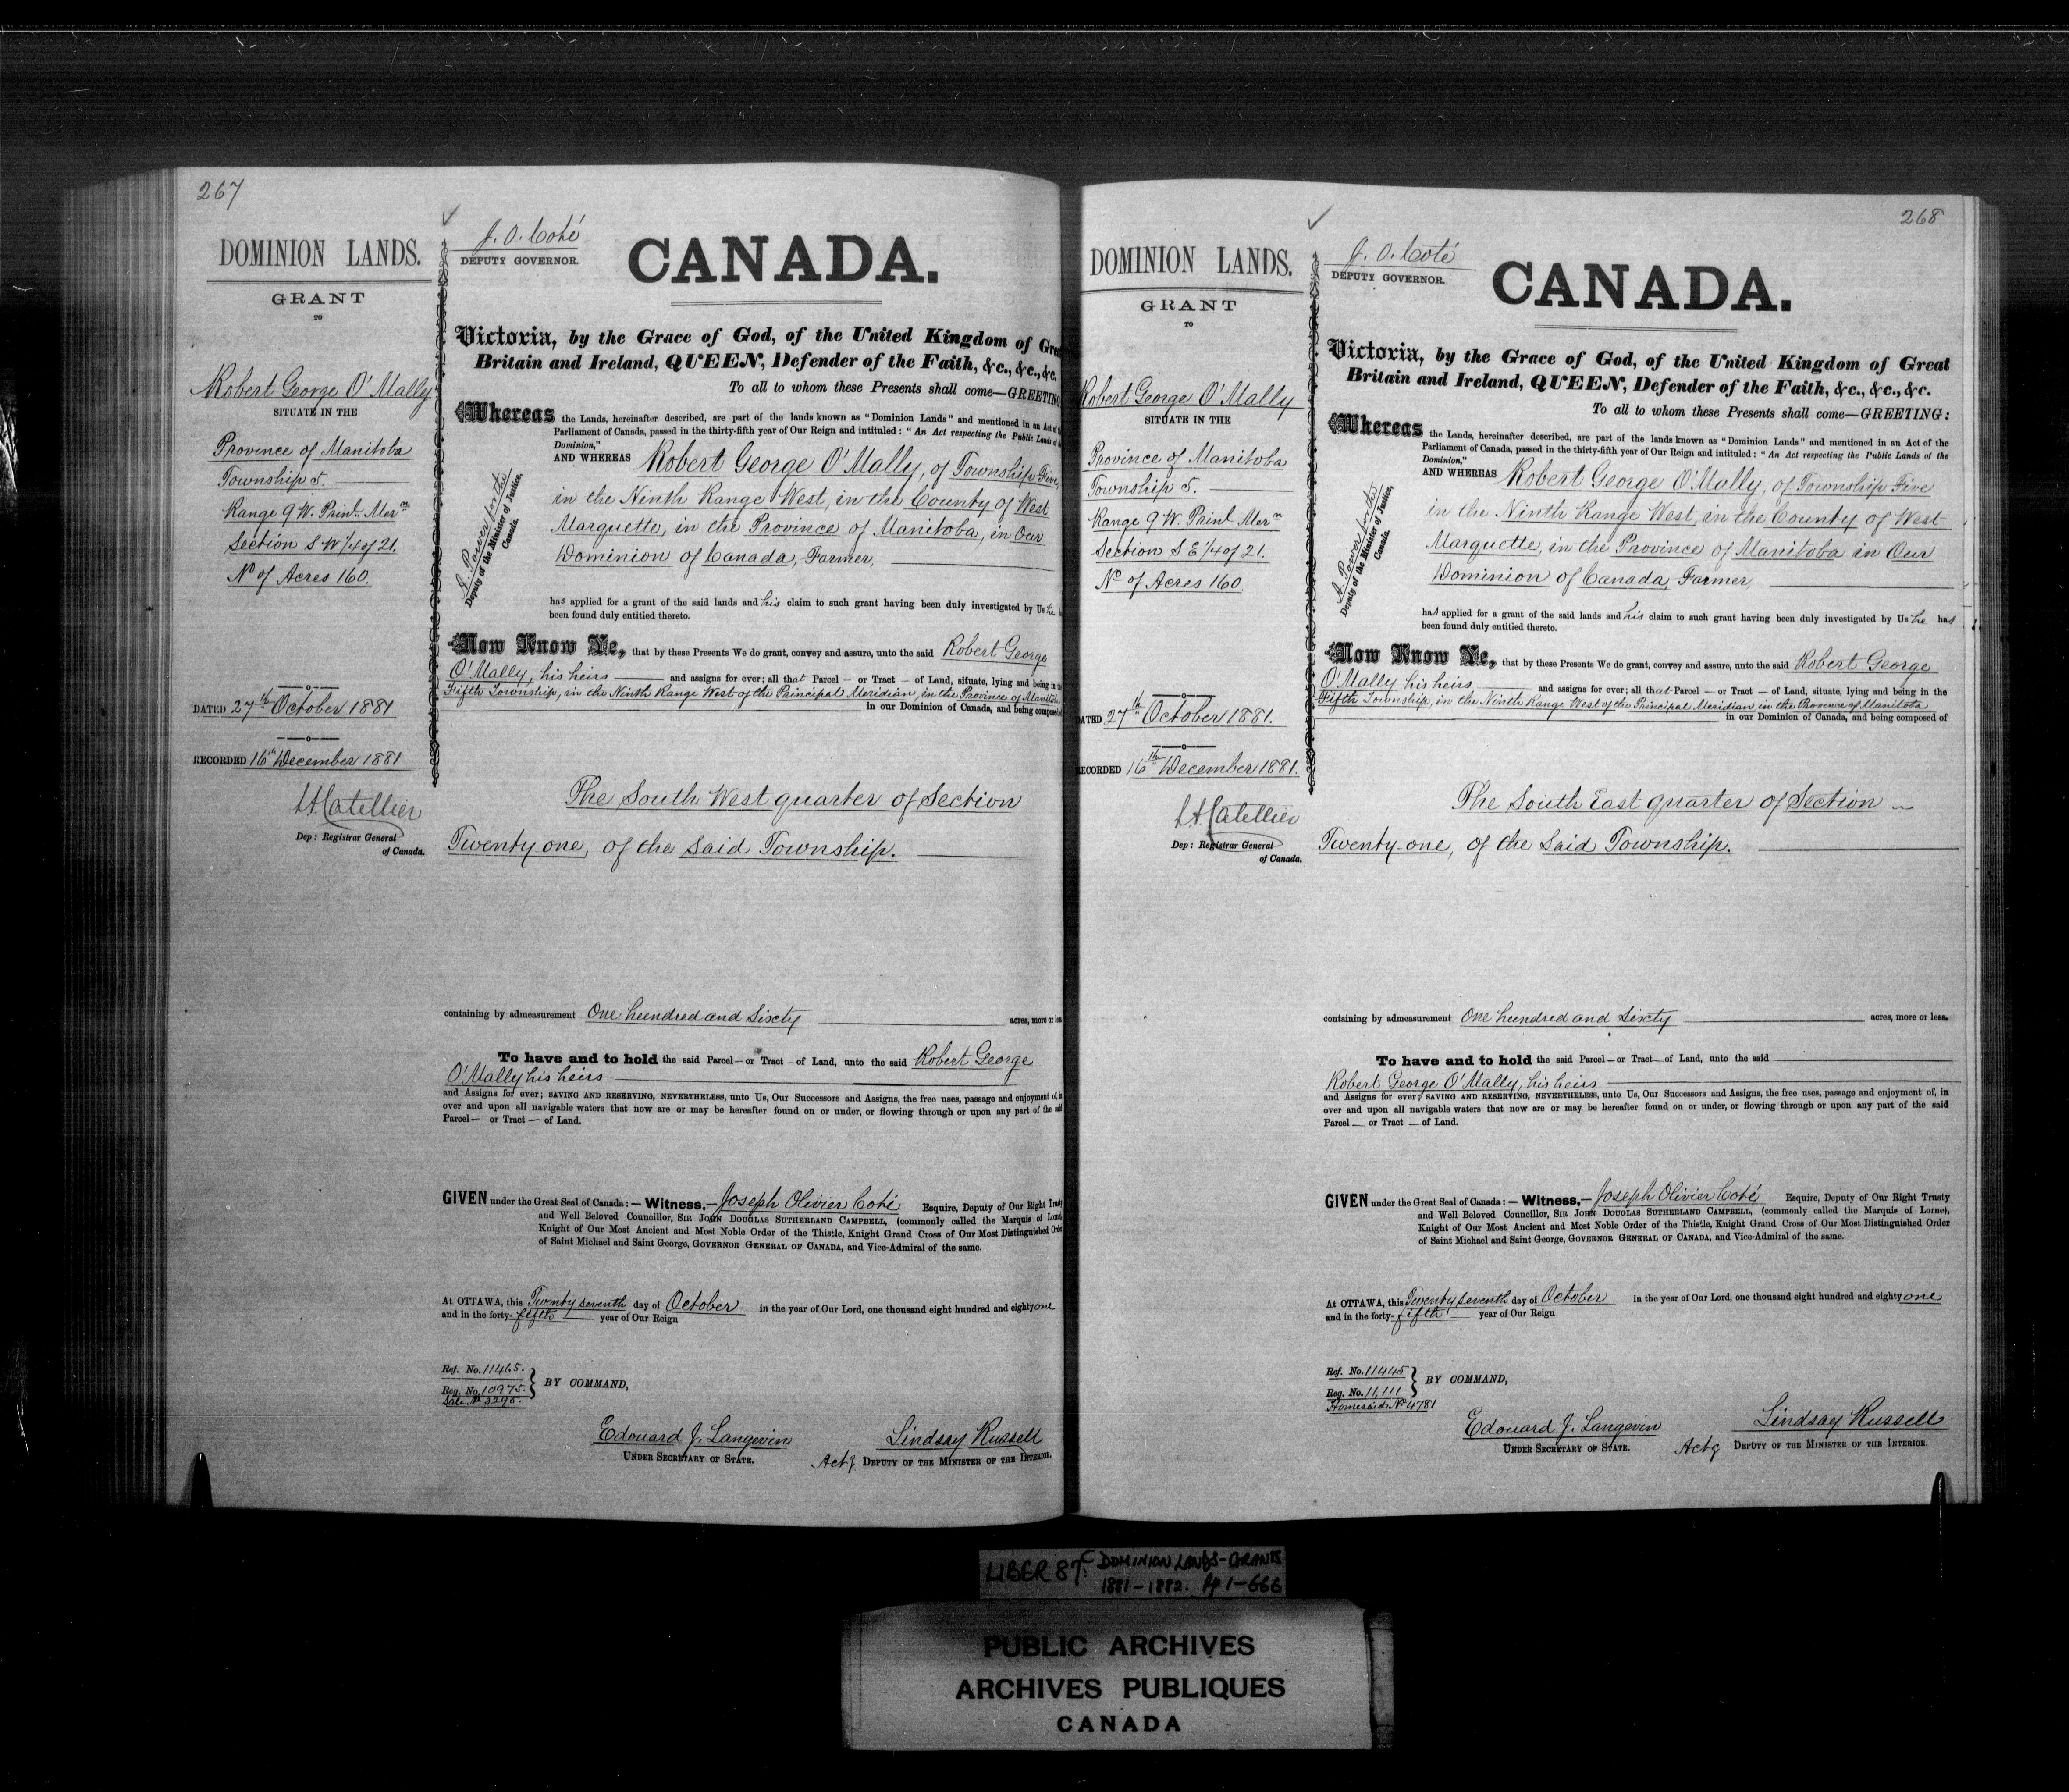 267
DOMINION LANDS.
GRANT
TO
Robert George O'Mally
SITUATE IN THE
Province of Manitoba
Township 5.
Range 9 W. Prinl. Mer n
Section S W 1/4 of 21.
No of Acres 160.
DATED 27th October 1881
RECORDED 16th December 1881
L.A. Catellier
Dep: Registrar General
of Canada.
J. O. Coté
DEPUTY GOVERNOR.
CANADA.
Victoria, by the Grace of God, of the United Kingdom of Gre
Britain and Ireland, QUEEN, Defender of the Faith, &c., &c., &c.
To all to whom these Presents shall come—GREETING
Whereas the Lands, hereinafter described, are part of the lands known as "Dominion Lands" and mentioned in an Act of
Parliament of Canada, passed in the thirty-fifth year of Our Reign and intituled: "An Act respecting the Public Lands of
Dominion,"
AND WHEREAS Robert George O'Mally, of Township Five,
in the Ninth Range West, in the County of West
Marquette, in the Province of Manitoba, in Our
Dominion of Canada, Farmer,
A. Power for the
Deputy of the Minister of Justice,
Canada.
has applied for a grant of the said lands and his claim to such grant having been duly investigated by Us he
been found duly entitled thereto.
Now Know Ye, that by these Presents We do grant, convey and assure, unto the said Robert George
O'Mally, his heirs and assigns for ever; all that Parcel — or Tract — of Land, situate, lying and being in
Fifth Township, in the Ninth Range West of the Principal Meridian, in the Province of Manitoba
in our Dominion of Canada, and being composed
The South West quarter of Section
Twenty one, of the said Township.
containing by admeasurement One hundred and Sixty acres, more or les
To have and to hold the said Parcel — or Tract — of Land, unto the said Robert George
O'Mally his heirs
and Assigns for ever; SAVING AND RESERVING, NEVERTHELESS, unto Us, Our Successors and Assigns, the free uses, passage and enjoyment of, in
over and upon all navigable waters that now are or may be hereafter found on or under, or flowing through or upon any part of the said
Parcel — or Tract — of Land.
GIVEN under the Great Seal of Canada: — Witness, — Joseph Olivier Coté Esquire, Deputy of Our Right Trusty
and Well Beloved Councillor, SIR JOHN DOUGLAS SUTHERLAND CAMPBELL, (commonly called the Marquis of Lorne),
Knight of Our Most Ancient and Most Noble Order of the Thistle, Knight Grand Cross of Our Most Distinguished Order
of Saint Michael and Saint George, GOVERNOR GENERAL OF CANADA, and Vice-Admiral of the same.
At OTTAWA, this Twenty seventh day of October in the year of Our Lord, one thousand eight hundred and eighty one
and in the forty-fifth year of Our Reign
Ref. No. 11465.
Reg. No. 10975.
Sale No 3295.
BY COMMAND,
Edouard J. Langevin
UNDER SECRETARY OF STATE.
Lindsay Russell
Actg. DEPUTY OF THE MINISTER OF THE INTERIOR.
268
DOMINION LANDS.
GRANT
TO
Robert George O'Mally
SITUATE IN THE
Province of Manitoba
Township 5.
Range 9 W. Prinl Mer n
Section S E 1/4 of 21.
No of Acres 160.
DATED 27th October 1881.
RECORDED 16th December 1881.
L.A. Catellier
Dep: Registrar General
of Canada.
J. O. Coté
DEPUTY GOVERNOR.
CANADA.
Victoria, by the Grace of God, of the United Kingdom of Great
Britain and Ireland, QUEEN, Defender of the Faith, &c., &c., &c.
To all to whom these Presents shall come—GREETING:
Whereas the Lands, hereinafter described, are part of the lands known as "Dominion Lands" and mentioned in an Act of the
Parliament of Canada, passed in the thirty-fifth year of Our Reign and intituled: "An Act respecting the Public Lands of the
Dominion,"
AND WHEREAS Robert George O'Mally, of Township Five
in the Ninth Range West, in the County of West
Marquette, in the Province of Manitoba in Our
Dominion of Canada, Farmer
A. Power for the
Deputy of the Minister of Justice,
Canada.
has applied for a grant of the said lands and his claim to such grant having been duly investigated by Us he has
been found duly entitled thereto.
Now Know Ye, that by these Presents We do grant, convey and assure, unto the said Robert George
O'Mally his heirs and assigns for ever; all that Parcel — or Tract — of Land, situate, lying and being in the
Fifth Township, in the Ninth Range West of the Principal Meridian in the Province of Manitoba
in our Dominion of Canada, and being composed of
The South East quarter of Section
Twenty-one, of the said Township.
containing by admeasurement One hundred and Sixty acres, more or less.
To have and to hold the said Parcel — or Tract — of Land, unto the said
Robert George O'Mally, his heirs
and Assigns for ever; SAVING AND RESERVING, NEVERTHELESS, unto Us, Our Successors and Assigns, the free uses, passage and enjoyment of, in
over and upon all navigable waters that now are or may be hereafter found on or under, or flowing through or upon any part of the said
Parcel — or Tract — of Land.
GIVEN under the Great Seal of Canada: — Witness, — Joseph Olivier Coté Esquire, Deputy of Our Right Trusty
and Well Beloved Councillor, SIR JOHN DOUGLAS SUTHERLAND CAMPBELL, (commonly called the Marquis of Lorne),
Knight of Our Most Ancient and Most Noble Order of the Thistle, Knight Grand Cross of Our Most Distinguished Order
of Saint Michael and Saint George, GOVERNOR GENERAL OF CANADA, and Vice-Admiral of the same.
At OTTAWA, this Twenty seventh day of October in the year of Our Lord, one thousand eight hundred and eighty one
and in the forty-fifth year of Our Reign
Ref. No. 11445
Reg. No. 11,111
Homestead No 4781
BY COMMAND,
Edouard J. Langevin
UNDER SECRETARY OF STATE.
Lindsay Russell
Actg DEPUTY OF THE MINISTER OF THE INTERIOR.
LIBER 87C: DOMINION LANDS-GRANTS
1881-1882. pp 1-666
PUBLIC ARCHIVES
ARCHIVES PUBLIQUES
CANADA